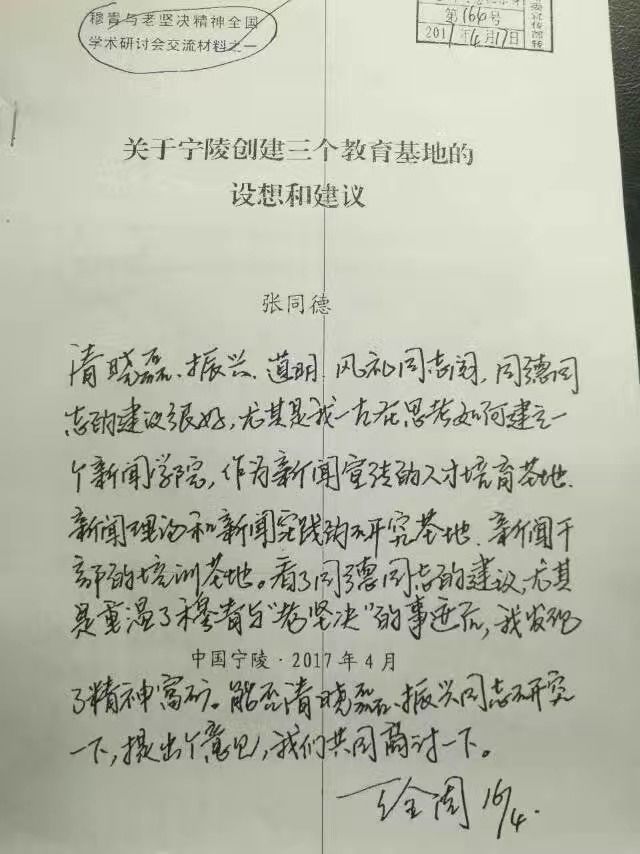 穆青与老坚决精神全国
学术研讨会交流材料之一
第166号
2017年4月17日
关于宁陵创建三个教育基地的
设想和建议
张同德
请晓磊、振兴、道明、风礼同志阅,同德同
志的建议很好,尤其是我一直在思考如何建立一
个新闻学院,作为新闻宣传的人才培育基地、
新闻理论和新闻实践的研究基地、新闻干
部的培训基地。看了同德同志的建议,尤其
是重温了穆青与“老坚决”的事迹后,我发现
中国宁陵·2017年4月
了精神富矿。能否请晓磊、振兴同志研究
一下,提出个意见,我们共同商讨一下。
王全周 16/4.